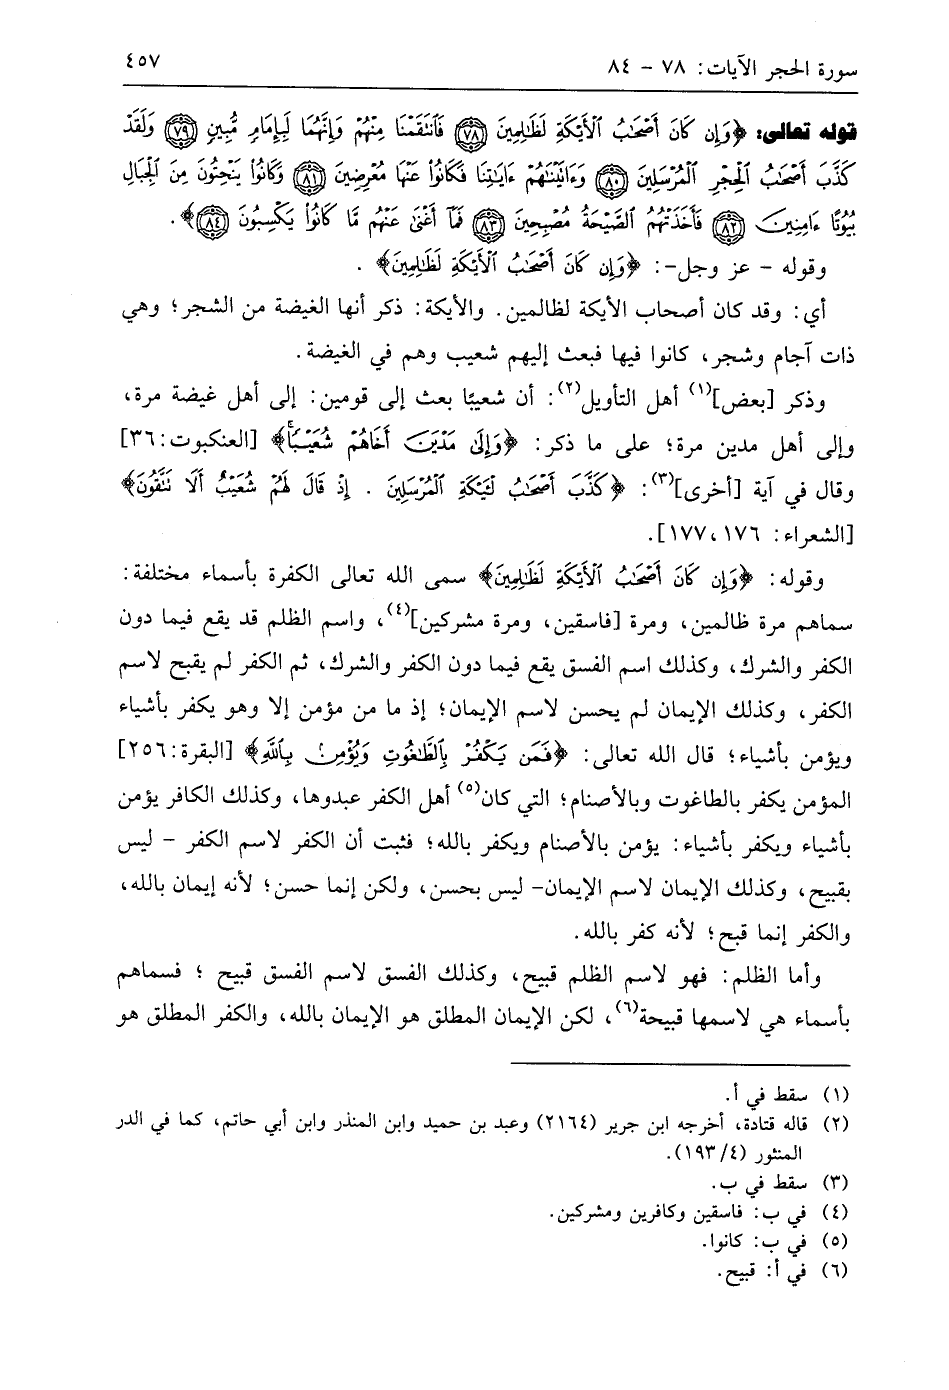 سورة الحجر الآيات: ٧٨ - ٨٤
٤٥٧
قوله تعالى: ﴿وَإِن كَانَ أَصْحَٰبُ ٱلْأَيْكَةِ لَظَٰلِمِينَ ﴿٧٨﴾ فَٱنتَقَمْنَا مِنْهُمْ وَإِنَّهُمَا لَبِإِمَامٍ مُّبِينٍ ﴿٧٩﴾ وَلَقَدْ
كَذَّبَ أَصْحَٰبُ ٱلْحِجْرِ ٱلْمُرْسَلِينَ ﴿٨٠﴾ وَءَاتَيْنَٰهُمْ ءَايَٰتِنَا فَكَانُوا۟ عَنْهَا مُعْرِضِينَ ﴿٨١﴾ وَكَانُوا۟ يَنْحِتُونَ مِنَ ٱلْجِبَالِ
بُيُوتًا ءَامِنِينَ ﴿٨٢﴾ فَأَخَذَتْهُمُ ٱلصَّيْحَةُ مُصْبِحِينَ ﴿٨٣﴾ فَمَآ أَغْنَىٰ عَنْهُم مَّا كَانُوا۟ يَكْسِبُونَ ﴿٨٤﴾﴾.
وقوله - عز وجل-: ﴿وَإِن كَانَ أَصْحَٰبُ ٱلْأَيْكَةِ لَظَٰلِمِينَ﴾ .
أي: وقد كان أصحاب الأيكة لظالمين. والأيكة: ذكر أنها الغيضة من الشجر؛ وهي
ذات آجام وشجر، كانوا فيها فبعث إليهم شعيب وهم في الغيضة.
وذكر [بعض](١) أهل التأويل(٢): أن شعيبًا بعث إلى قومين: إلى أهل غيضة مرة،
وإلى أهل مدين مرة؛ على ما ذكر: ﴿وَإِلَىٰ مَدْيَنَ أَخَاهُمْ شُعَيْبًا﴾ [العنكبوت:٣٦]
وقال في آية [أخرى](٣): ﴿كَذَّبَ أَصْحَٰبُ لْـَٔيْكَةِ ٱلْمُرْسَلِينَ . إِذْ قَالَ لَهُمْ شُعَيْبٌ أَلَا تَتَّقُونَ﴾
[الشعراء: ١٧٦،١٧٧].
وقوله: ﴿وَإِن كَانَ أَصْحَٰبُ ٱلْأَيْكَةِ لَظَٰلِمِينَ﴾ سمى الله تعالى الكفرة بأسماء مختلفة:
سماهم مرة ظالمين، ومرة [فاسقين، ومرة مشركين](٤)، واسم الظلم قد يقع فيما دون
الكفر والشرك، وكذلك اسم الفسق يقع فيما دون الكفر والشرك، ثم الكفر لم يقبح لاسم
الكفر، وكذلك الإيمان لم يحسن لاسم الإيمان؛ إذ ما من مؤمن إلا وهو يكفر بأشياء
ويؤمن بأشياء؛ قال الله تعالى: ﴿فَمَن يَكْفُرْ بِٱلطَّٰغُوتِ وَيُؤْمِنۢ بِٱللَّهِ﴾ [البقرة:٢٥٦]
المؤمن يكفر بالطاغوت وبالأصنام؛ التي كان(٥) أهل الكفر عبدوها، وكذلك الكافر يؤمن
بأشياء ويكفر بأشياء: يؤمن بالأصنام ويكفر بالله؛ فثبت أن الكفر لاسم الكفر - ليس
بقبيح، وكذلك الإيمان لاسم الإيمان- ليس بحسن، ولكن إنما حسن؛ لأنه إيمان بالله،
والكفر إنما قبح؛ لأنه كفر بالله.
وأما الظلم: فهو لاسم الظلم قبيح، وكذلك الفسق لاسم الفسق قبيح ؛ فسماهم
بأسماء هي لاسمها قبيحة(٦)، لكن الإيمان المطلق هو الإيمان بالله، والكفر المطلق هو
(١) سقط في أ.
(٢) قاله قتادة، أخرجه ابن جرير (٢١٦٤) وعبد بن حميد وابن المنذر وابن أبي حاتم، كما في الدر
المنثور (١٩٣/٤).
(٣) سقط في ب.
(٤) في ب: فاسقين وكافرين ومشركين.
(٥) في ب: كانوا.
(٦) في أ: قبيح.